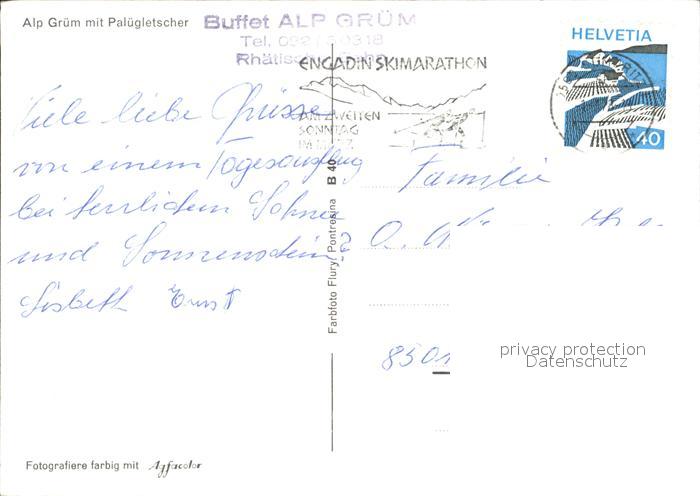 Alp Grüm mit Palügletscher
Buffet ALP GRÜM
Tel. 082 / 5 0318
Rhätische Bahn
ENGADIN SKIMARATHON
AM ZWEITEN
SONNTAG
IM MÄRZ
HELVETIA
40
Viele liebe Grüsse
von einem Tagesausflug
bei herrlichem Schnee
und Sonnenschein
Lisbeth Ernst
Farbfoto Flury, Pontresina B 40
Familie
O.
8501
privacy protection
Datenschutz
Fotografiere farbig mit Agfacolor